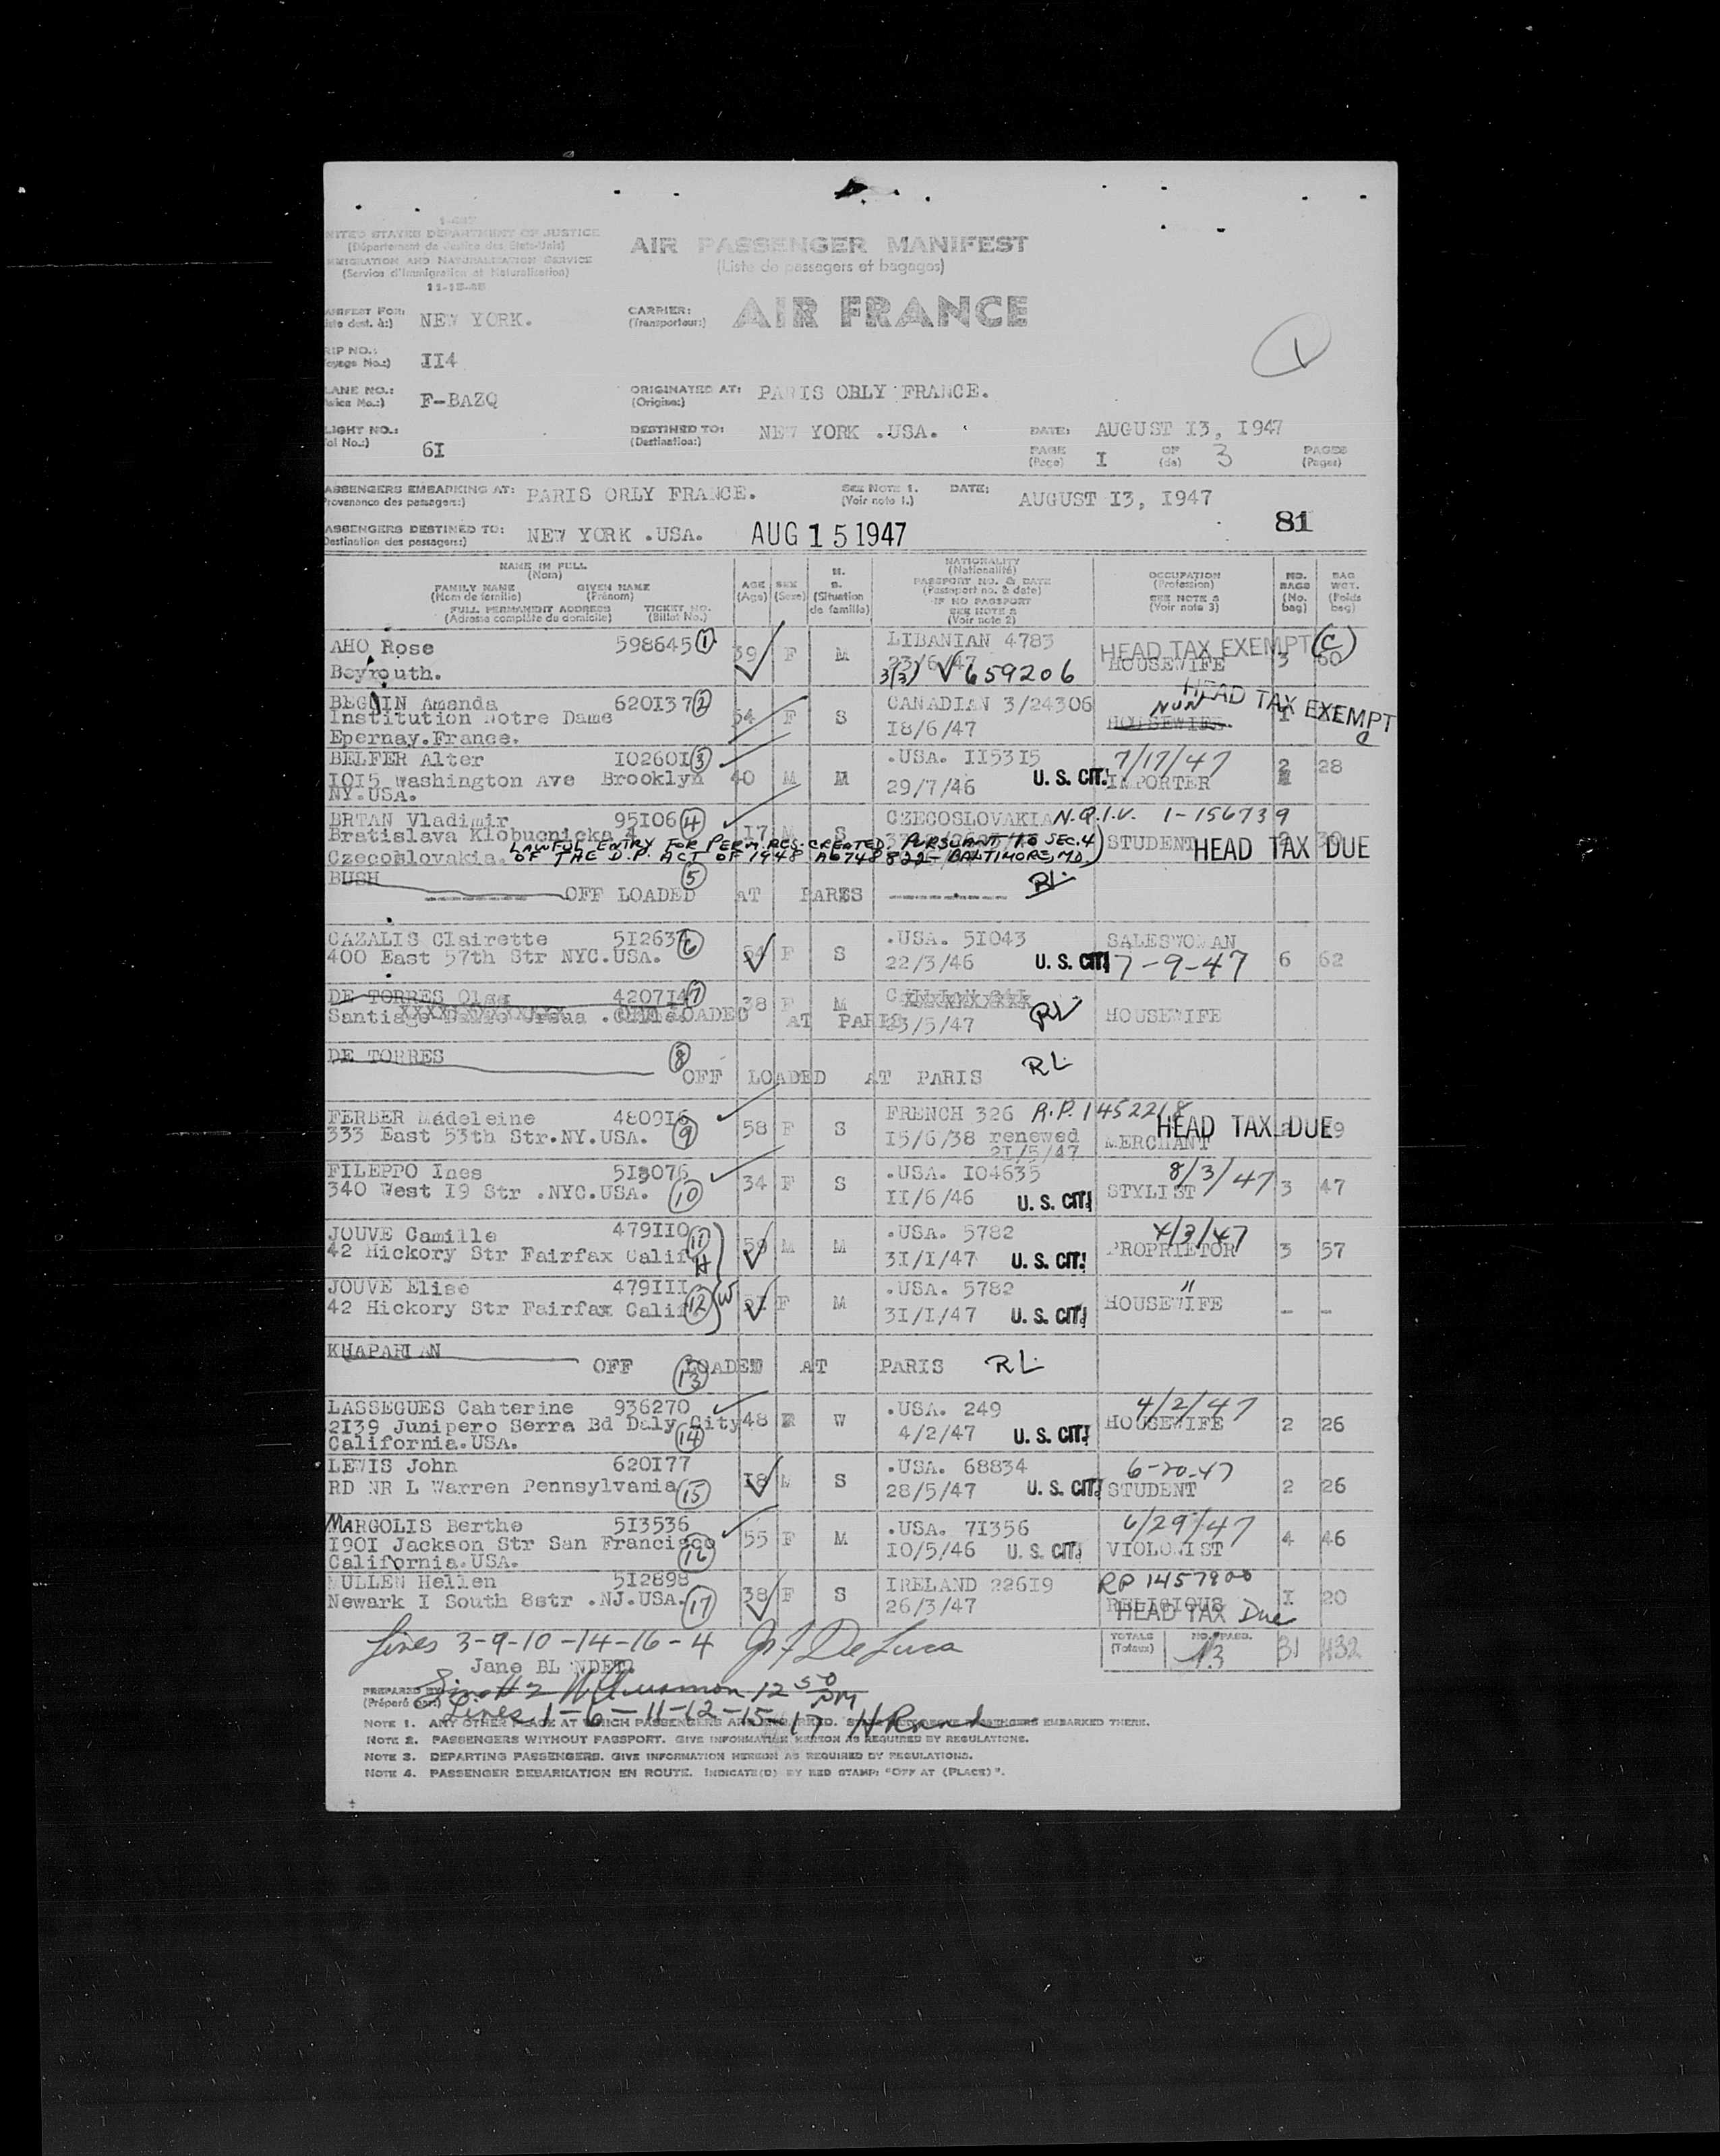 1-467
NITED STATES DEPARTMENT OF JUSTICE
(Département de Justice des Etats-Unis)
MMIGRATION AND NATURALIZATION SERVICE
(Service d'Immigration et Naturalisation)
11-15-45
AIR PASSENGER MANIFEST
(Liste de passagers et bagages)
CARRIER: AIR FRANCE
(Transporteur:)
ANIFEST FOR: NEW YORK.
iste dest. à:)
RIP NO.: II4
oyage No.:)
LANE NO.: F-BAZQ
ORIGINATED AT: PARIS ORLY FRANCE.
(Origine:)
LIGHT NO.: 6I
ol No.:)
DESTINED TO: NEW YORK .USA.
(Destination:)
DATE: AUGUST I3, I947
PAGE I OF 3 PAGES
(Page) (de) (Pages)
ASSENGERS EMBARKING AT: PARIS ORLY FRANCE.
Provenance des passagers:)
SEE NOTE 1. DATE: AUGUST I3, I947
(Voir note 1.)
ASSENGERS DESTINED TO: NEW YORK .USA. AUG 15 1947 81
Destination des passagers:)
NAME IN FULL
(Nom)
FAMILY NAME GIVEN NAME
(Nom de famille) (Prénom)
FULL PERMANENT ADDRESS TICKET NO.
(Adresse complète du domicile) (Billet No.)
AGE
(Age)
SEX
(Sexe)
M.
S.
(Situation
de famille)
NATIONALITY
(Nationalité)
PASSPORT NO. & DATE
(Passeport no. & date)
IF NO PASSPORT
SEE NOTE 2
(Voir note 2)
OCCUPATION
(Profession)
SEE NOTE 3
(Voir note 3)
NO.
BAGS
(No.
bag)
BAG
WGT.
(Poids
bag)
AHO Rose 598645 1 39 F M LIBANIAN 4783 HEAD TAX EXEMPT (C)
Beyrouth. 23/6/47 HOUSEWIFE 3 60
3(3) V659206
BEGUIN Amanda 620I37 2 54 F S CANADIAN 3/24306 NUN HEAD TAX EXEMPT
Institution Notre Dame I8/6/47 HOUSEWIFE I
Epernay.France.
BELFER Alter I0260I 3 40 M M .USA. II53I5 7/17/47 2 28
I0I5 Washington Ave Brooklyn 29/7/46 U. S. CIT. IMPORTER
NY.USA.
BRTAN Vladimir 95I06 4 I7 M S CZECOSLOVAKIA N.Q.I.V. 1-156739
Bratislava Klobucnicka 4 STUDENT HEAD TAX DUE 2 30
Czecoslovakia.
LAWFUL ENTRY FOR PERM. RES. CREATED PURSUANT TO SEC. 4
OF THE D.P. ACT OF 1948 A6748822 - BALTIMORE, MD.)
BUSH 5
OFF LOADED AT PARIS RL
CAZALIS Clairette 5I2637 6 54 F S .USA. 5I043 SALESWOMAN
400 East 57th Str NYC.USA. 22/3/46 U. S. CIT 7-9-47 6 62
DE TORRES Olga 4207I4 7 38 F M
Santiago OFF LOADED AT PARIS 23/5/47 RL HOUSEWIFE
DE TORRES 8
OFF LOADED AT PARIS RL
FERBER Madeleine 4809I6 9 58 F S FRENCH 326 R.P. 1452218 HEAD TAX DUE
333 East 53th Str.NY.USA. I5/6/38 renewed MERCHANT
2I/5/47
FILEPPO Ines 5I3076 10 34 F S .USA. I04635 8/3/47
340 West I9 Str .NYC.USA. II/6/46 U. S. CIT. STYLIST 3 47
JOUVE Camille 479II0 11 59 M M .USA. 5782 4/3/47
42 Hickory Str Fairfax Calif H 3I/I/47 U. S. CIT. PROPRIETOR 3 57
JOUVE Elise 479III 12 W F M .USA. 5782 "
42 Hickory Str Fairfax Calif 3I/I/47 U. S. CIT. HOUSEWIFE - -
KHAPARIAN
OFF LOADED AT PARIS RL
13
LASSEGUES Cahterine 936270 14 48 F W .USA. 249 4/2/47
2I39 Junipero Serra Bd Daly City 4/2/47 U. S. CIT. HOUSEWIFE 2 26
California.USA.
LEWIS John 620I77 15 I8 M S .USA. 68834 6-20-47
RD NR L Warren Pennsylvania 28/5/47 U. S. CIT. STUDENT 2 26
MARGOLIS Berthe 5I3536 16 55 F M .USA. 7I356 6/29/47
I90I Jackson Str San Francisco I0/5/46 U. S. CIT. VIOLONIST 4 46
California.USA.
MULLEN Hellen 5I2898 17 38 F S IRELAND 226I9 RP 1457800
Newark I South 8str .NJ.USA. 26/3/47 RELIGIOUS I 20
HEAD TAX Due
Lines 3-9-10-14-16-4 Jos F DeLuca
TOTALS NO. PASS. 13 31 432
(Totaux)
PREPARED BY
(Préparé par:)
12 50 PM
Lines 1-6-11-12-15-17
NOTE 1. ANY OTHER PLACE AT WHICH PASSENGERS ARE EMBARKED. PASSENGERS EMBARKED THERE.
NOTE 2. PASSENGERS WITHOUT PASSPORT. GIVE INFORMATION HEREON AS REQUIRED BY REGULATIONS.
NOTE 3. DEPARTING PASSENGERS. GIVE INFORMATION HEREON AS REQUIRED BY REGULATIONS.
NOTE 4. PASSENGER DEBARKATION EN ROUTE. INDICATE(D) BY RED STAMP: "OFF AT (PLACE)".